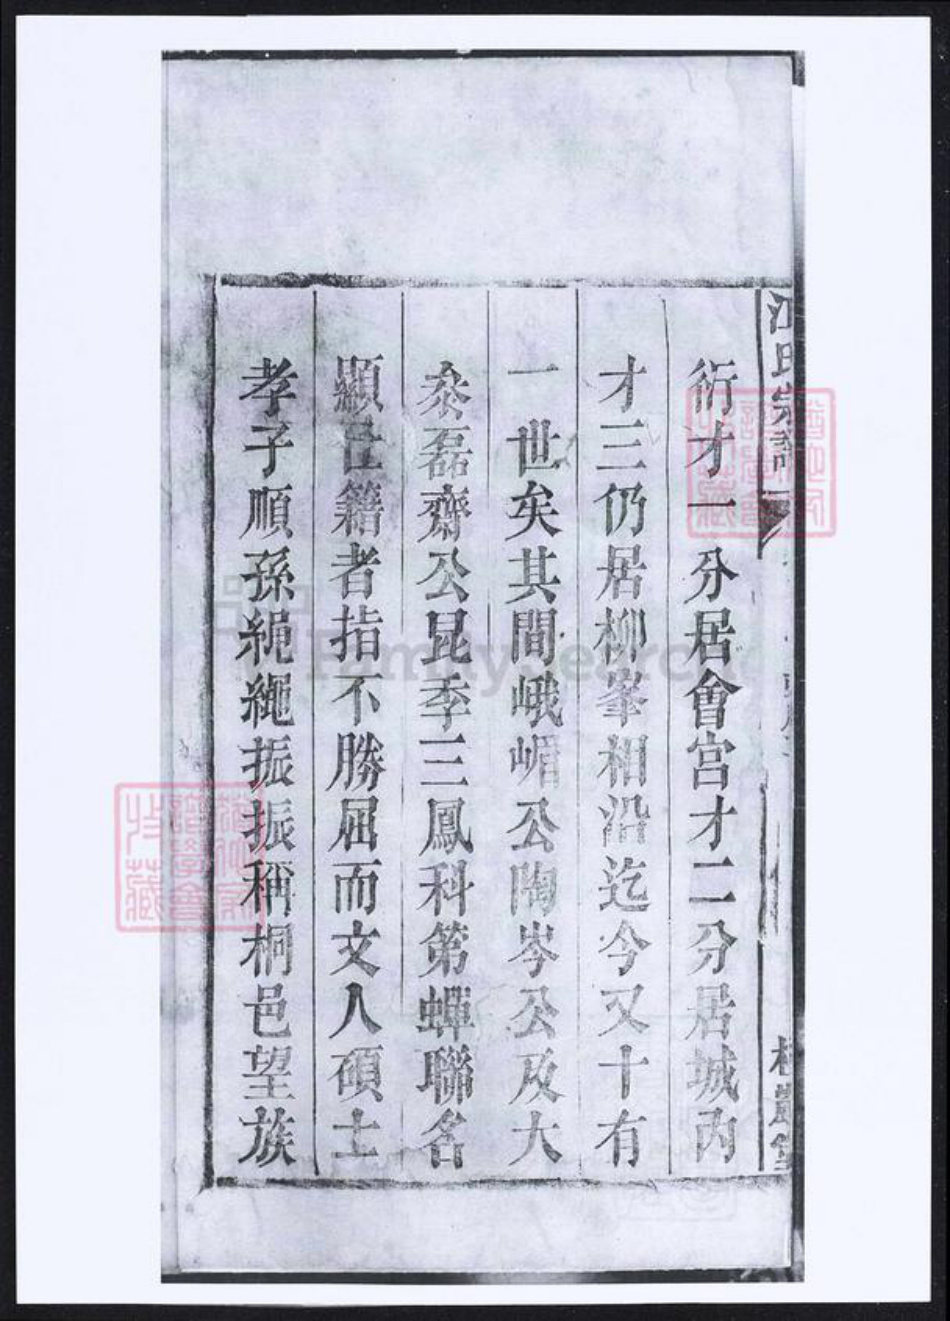 江氏宗譜
衍才一分居會宫才二分居城內
才三仍居柳峯相沿迄今又十有
一世矣其間峨嵋公陶岑公及大
泰磊齋公昆季三鳳科第蟬聯名
顯仕籍者指不勝屈而文人碩士
孝子順孫繩繩振振稱桐邑望族
FamilySearch